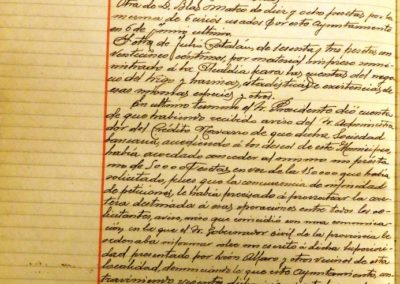 Otra de D. Blas Mateo de diez y ocho pesetas por la
de 6 usados por este Ayuntamiento
en 6 de Junio último.
Y otra de Julio Catalán de sesenta y tres pesetas con
veinticinco céntimos por material impreso sumi-
nistrado á la Alcaldía para las cuentas del nego-
cio del trigo y harinas, estadísticas de existencias de
esas mismas especies y otros.
En último termino el Sr. Presidente dió cuenta
de que habiendo recibido aviso del Sr. Administra
dor del Crédito Navarro de que dicha Sociedad
bancaria, accediendo á los deseos de este Municipio
había acordado conceder al mismo un présta-
mo de 5000 Pesetas en vez de las 15000 que había
solicitado, pues que la concurrencia de infinidad
de peticiones, le había precisado á prorratear la car-
tera destinada á esas operaciones entre todos los so-
licitantes, aviso, que coincidió con una comunica-
ción, en la que el Sr. Gobernador civil de la provincia le
ordenaba informar sobre un escrito á dicha Superiori-
dad presentado por León Alfaro y otros vecinos de esta
localidad, denunciando lo que este Ayuntamiento, con-
traviniendo